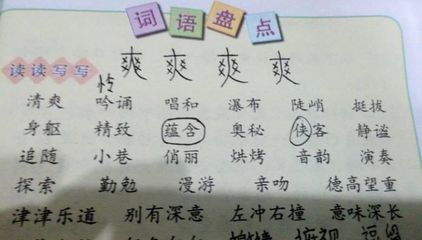 词语盘点
爽 爽 爽 爽
读读写写
清爽 吟诵 唱和 瀑布 陡峭 挺拔
身躯 精致 蕴含 奥秘 侠客 静谧
追随 小巷 俏丽 烘烤 音韵 演奏
探索 勤勉 漫游 亲吻 德高望重
津津乐道 别有深意 左冲右撞 意味深长